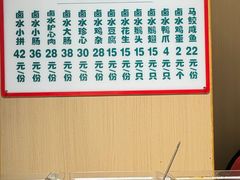 卤水小拼 42元/份
卤水小肠 36元/份
卤水护心肉 28元/份
卤水大肠 38元/份
卤水珍心 30元/份
卤水鸡杂 28元/份
卤水豆腐 15元/份
卤水花生 15元/份
卤水鹅头 15元/只
卤水鹅翅 15元/只
卤水鸭爪 4元/只
卤水鸡蛋 2元/个
马鲛咸鱼 22元/份